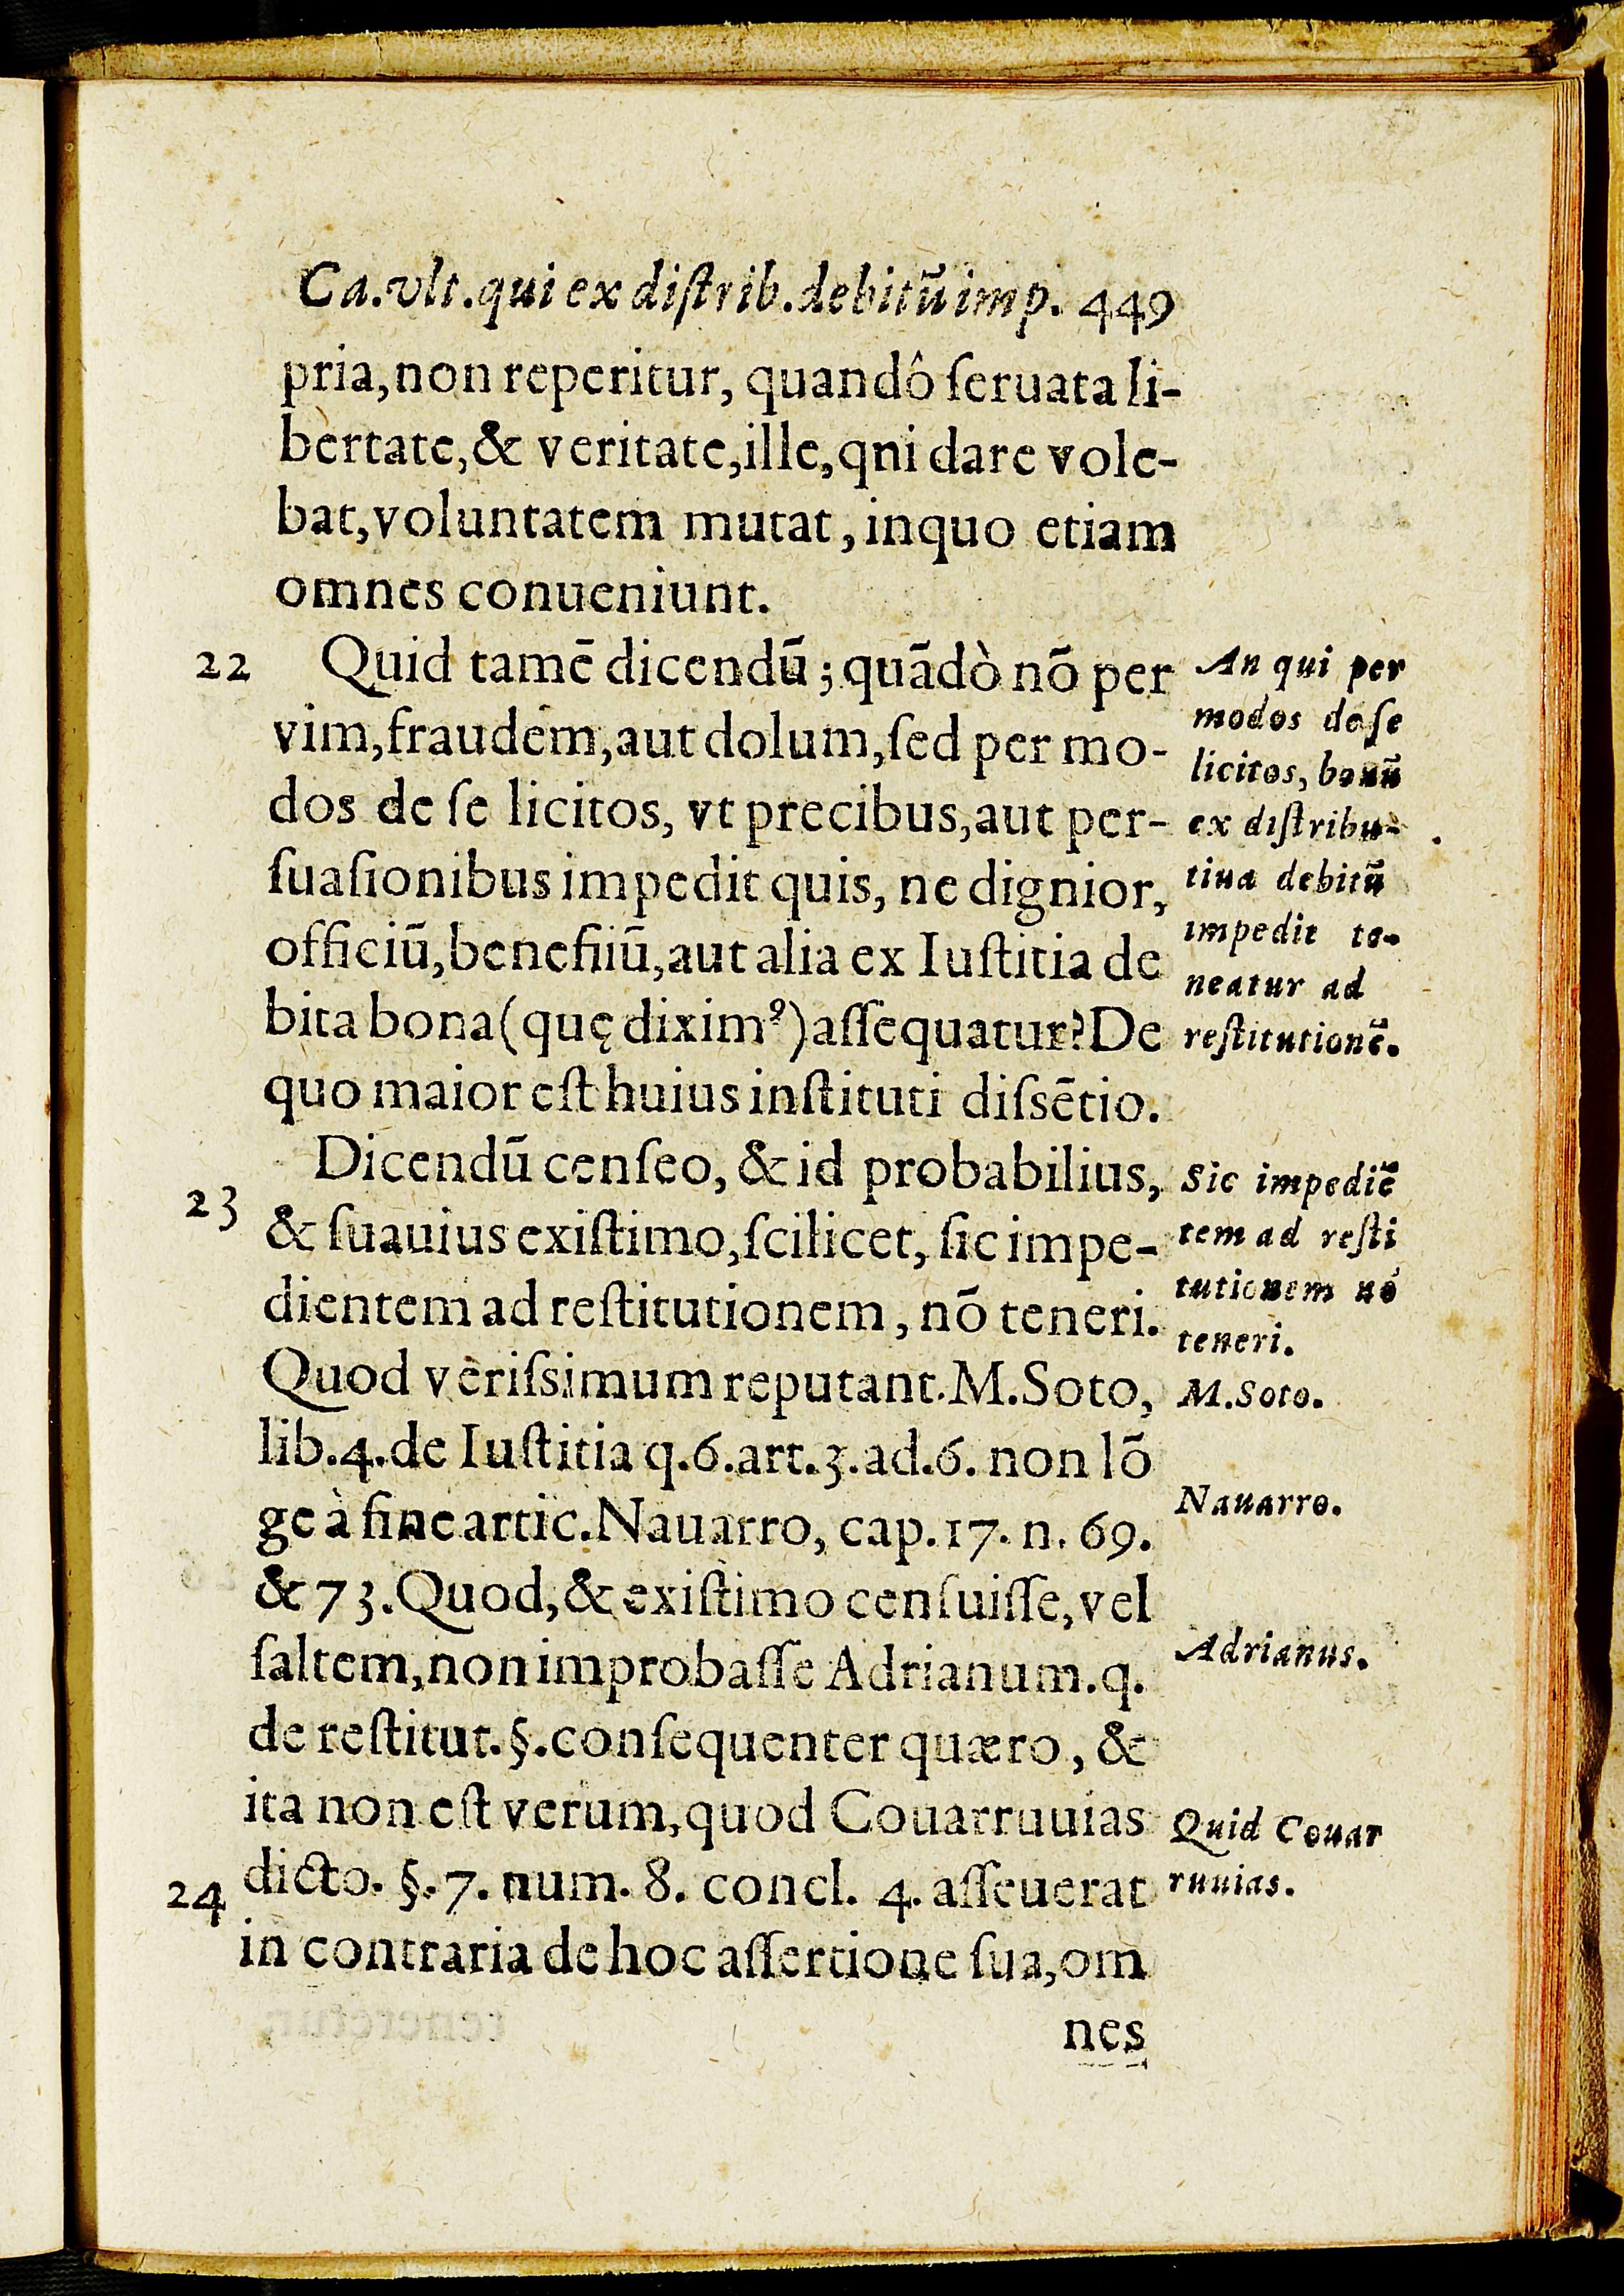 Ca.vlt.qui ex diſtrib.debitũ imp. 449
pria, non reperitur, quandô ſeruata li-
bertate, & veritate, ille, qni dare vole-
bat, voluntatem mutat, inquo etiam
omnes conueniunt.
22 Quid tamē dicendū; quādò nō per
vim, fraudem, aut dolum, ſed per mo-
dos de ſe licitos, vt precibus, aut per-
ſuaſionibus impedit quis, ne dignior,
officiū, benefiiū, aut alia ex Iuſtitia de
bita bona (quę diximꝰ) aſſequatur? De
quo maior eſt huius inſtituti diſsētio.
An qui per
modos de ſe
licitos, bonũ
ex diſtribu-
tiua debitũ
impedit te-
neatur ad
reſtitutionē.
23 Dicendū cenſeo, & id probabilius,
& ſuauius exiſtimo, ſcilicet, ſic impe-
dientem ad reſtitutionem, nō teneri.
Quod veriſsimum reputant. M. Soto,
lib.4. de Iuſtitia q.6. art.3. ad.6. non lō
ge à fine artic. Nauarro, cap. 17. n. 69.
& 73. Quod, & exiſtimo cenſuiſſe, vel
ſaltem, non improbaſſe Adrianum. q.
de reſtitut. §. conſequenter quæro, &
ita non eſt verum, quod Couarruuias
24 dicto. §. 7. num. 8. concl. 4. aſſeuerat
in contraria de hoc aſſertione ſua, om
nes
Sic impediē
tem ad reſti
tutionem nō
teneri.
M. Soto.
Nauarro.
Adrianus.
Quid Couar
ruuias.